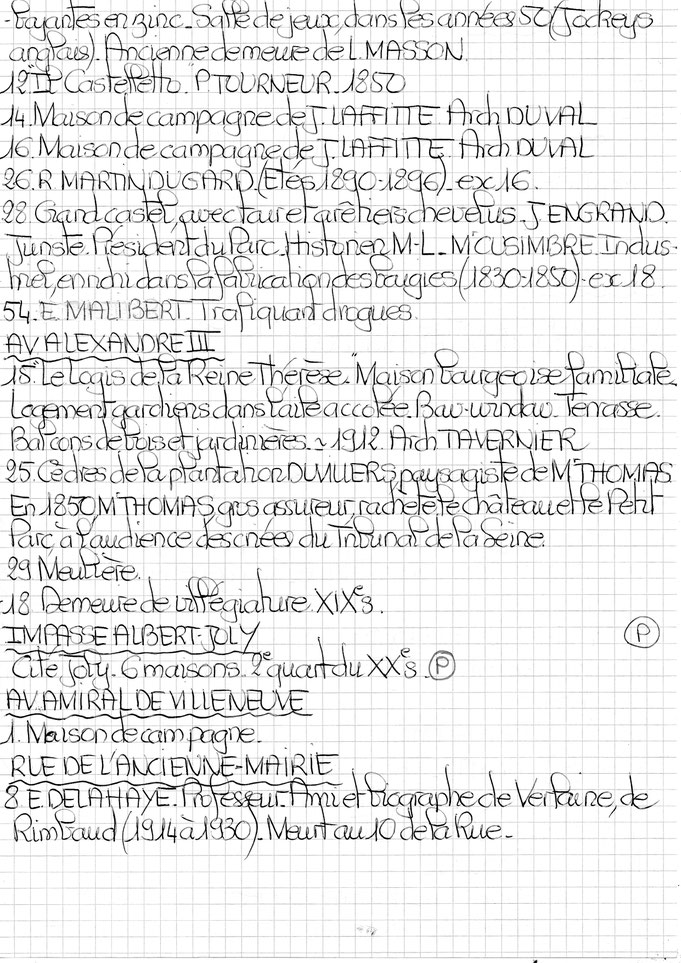 -bayantes en zinc. Salle de jeux, dans les années 50 (Jockeys
anglais). Ancienne demeure de L. MASSON.
12 "Il Castelletto." P TOURNEUR. 1850
14. Maison de campagne de J. LAFFITTE Arch DUVAL
16. Maison de campagne de J. LAFFITTE. Arch DUVAL
26. R MARTIN DU GARD. (Etés 1890-1896). ex 16.
28. Grand castel, avec tour et arêtiers chevelus. J ENGRAND.
Juriste. Président du Parc. Historien M-L. Mr CUSIMBRE. Indus-
triel, enrichi dans la fabrication des bougies (1830-1850). ex 18.
54. E. MALIBERT. Trafiquant drogues.
AV ALEXANDRE III
15. "Le Logis de la Reine Thérèse." Maison bourgeoise familiale.
Logement gardiens dans l'aile accolée. Bow-window. Terrasse.
Balcons de bois et jardinières. ~ 1912. Arch TAVERNIER
25. Cèdres de la plantation DUVILLERS, paysagiste de Mr THOMAS
En 1850 Mr THOMAS gros assureur, rachète le château et le Petit
Parc à l'audience des criées du Tribunal de la Seine.
29 Meulière.
18 Demeure de villégiature XIXe s.
IMPASSE ALBERT-JOLY
P
Cité Joly. 6 maisons. 2e quart du XXe s. P
AV. AMIRAL DE VILLENEUVE
1. Maison de campagne.
RUE DE L'ANCIENNE-MAIRIE
8 E. DELAHAYE. Professeur. Ami et biographe de Verlaine, de
Rimbaud (1914 à 1930). Meurt au 10 de la Rue.